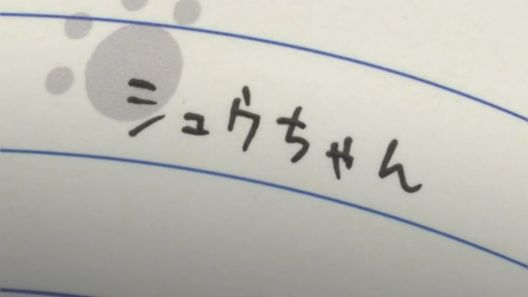 シュウちゃん